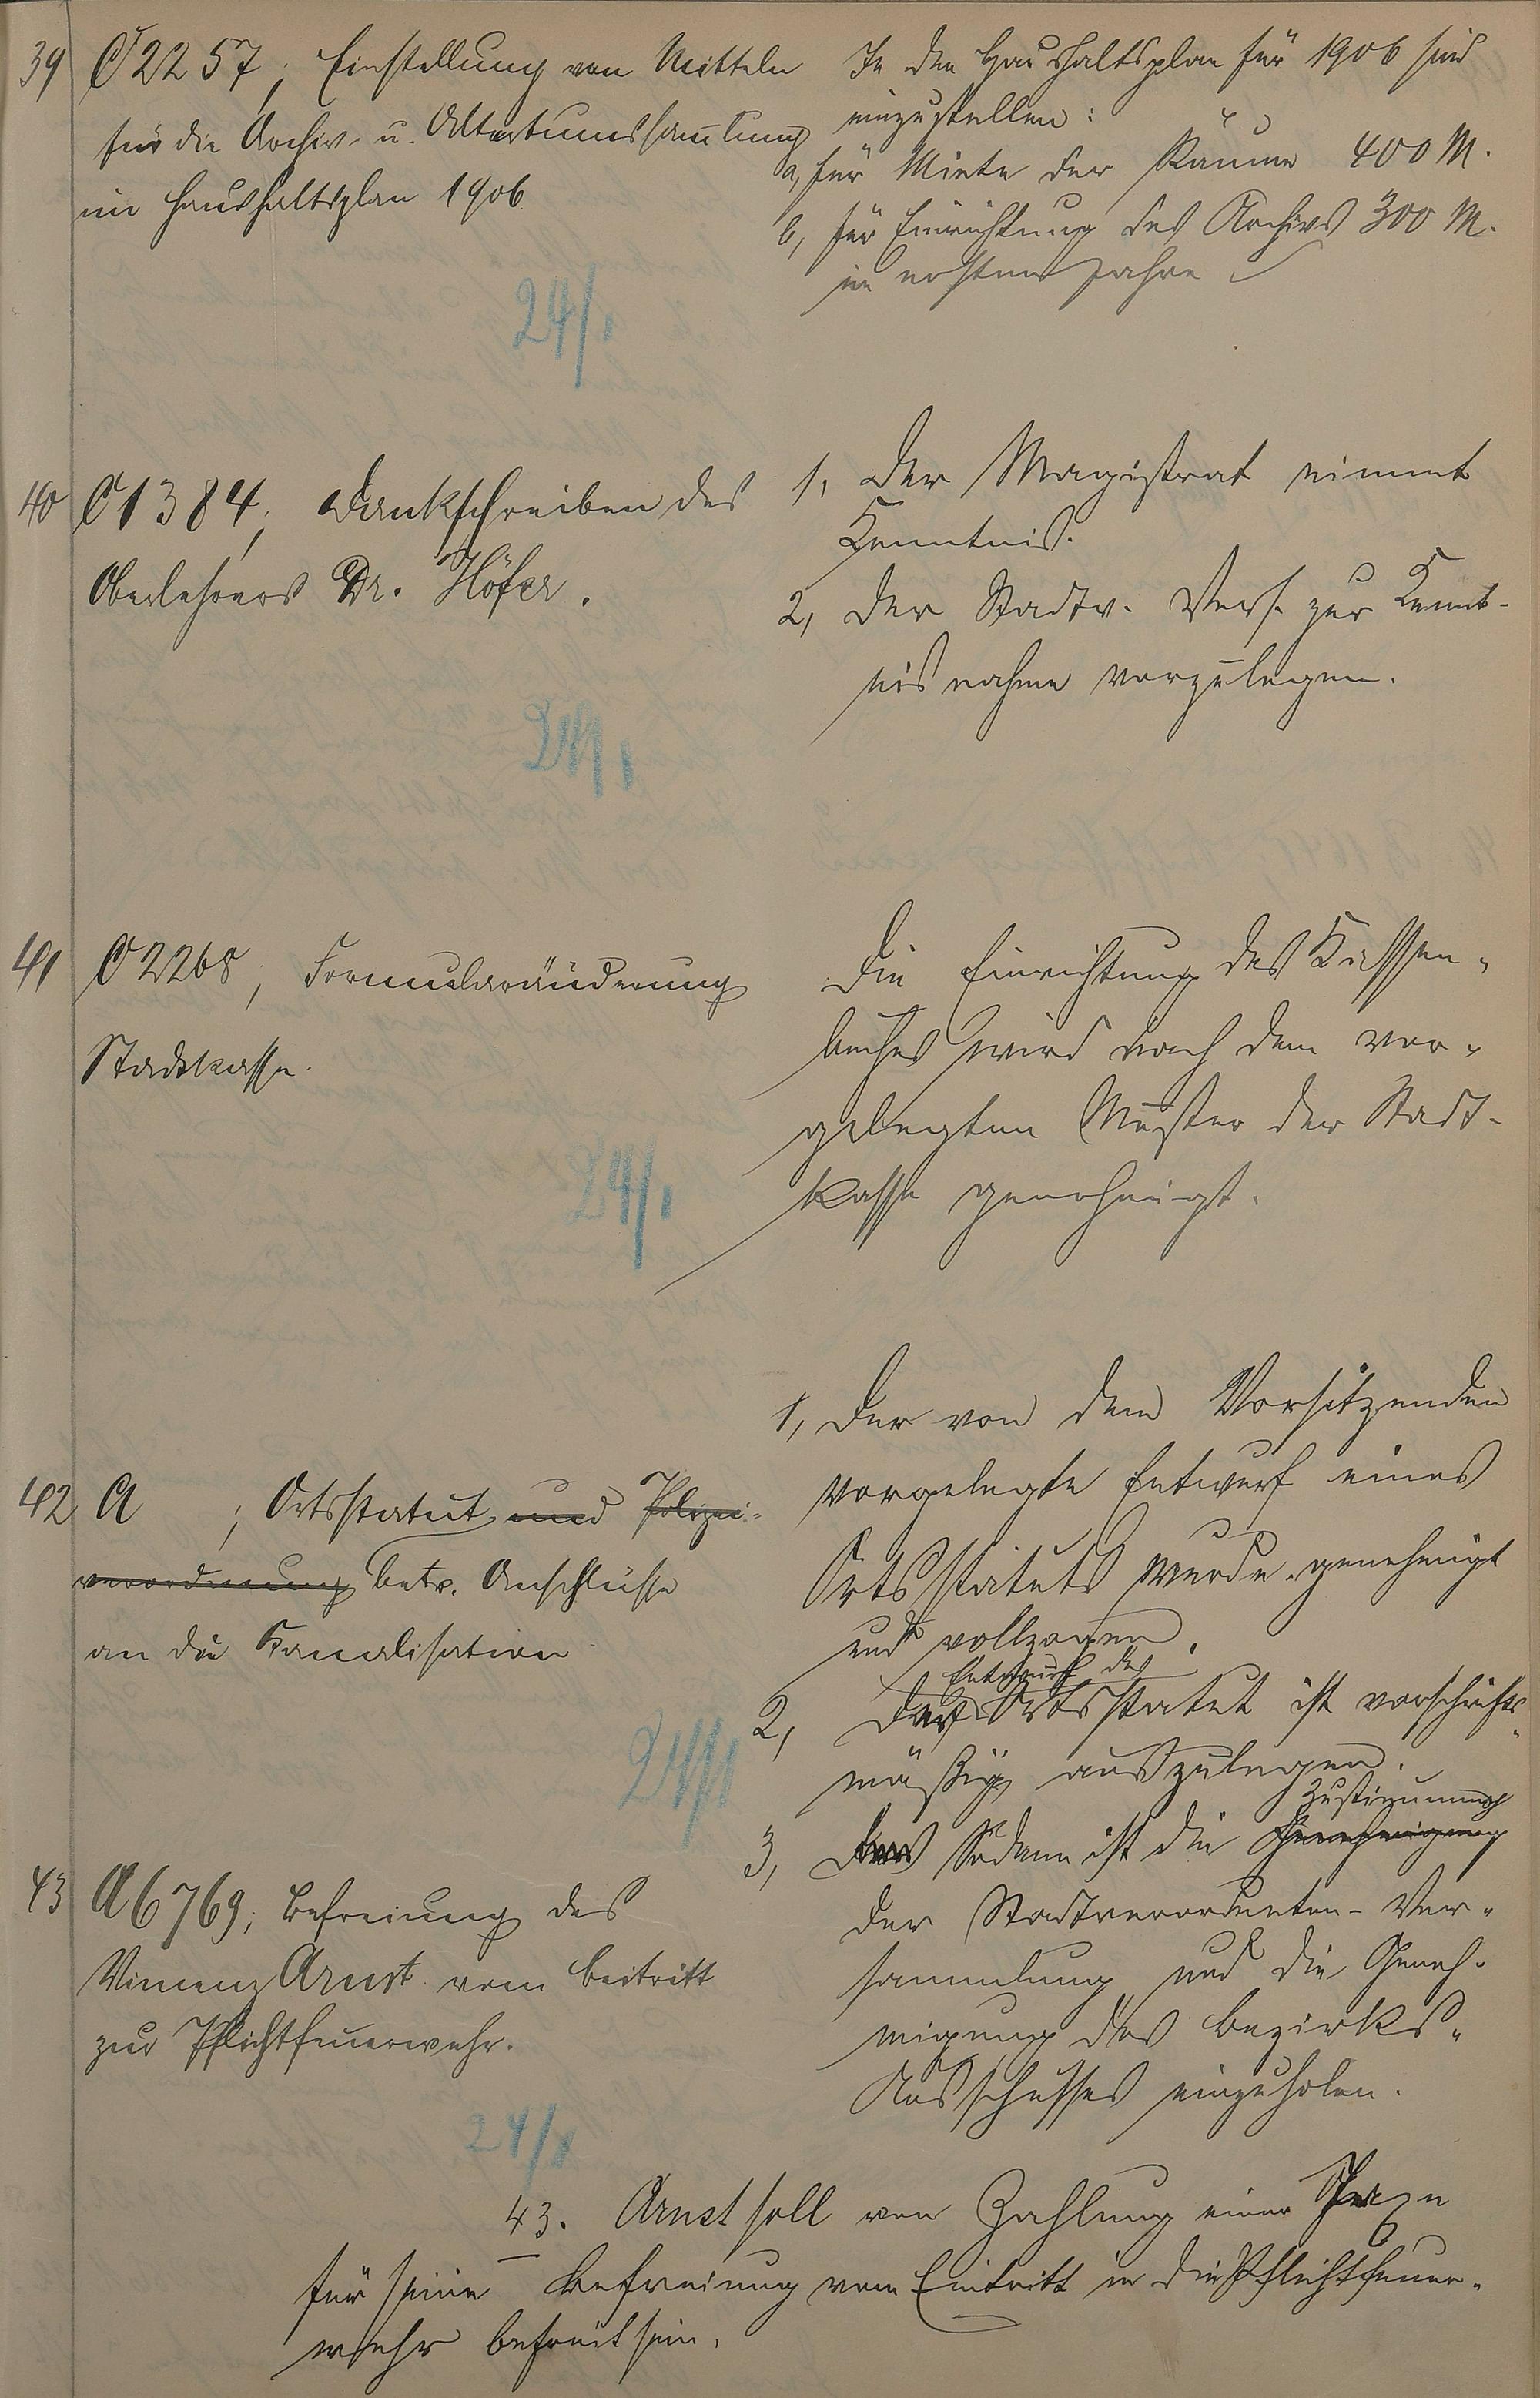 39 C 2257; Einstellung von Mitteln
für die Archiv- u. Altertumssamlung
im Haushaltsplan 1906.
24/1
In den Haushaltsplan für 1906 sind
einzustellen:
a, für Miete der Räume 400 M.
b, für Einrichtung des Archivs 300 M.
im ersten Jahre
40 C 1384; Dankschreiben des
Oberlehrers Dr. Höfer.
24/1
1, Der Magistrat nimmt
Kenntnis.
2, Der Stadtv. Vers. zur Kennt-
nisnahme vorzulegen.
41 C 2268; Formularänderung
Stadtkasse.
24/1
Die Einrichtung des Kassen-
buches wird nach dem vor-
gelegten Muster der Stadt-
kasse genehmigt.
42 A ; Ortsstatut und Polizei-
verordnung betr. Anschlüsse
an die Kanalisation
24/1
1, Der von dem Vorsitzenden
vorgelegte Entwurf eines
Ortsstatuts wurde genehmigt
und vollzogen.
Entwurf des
2, Das Ortsstatut ist vorschrifts-
mäßig auszulegen.
Zustimmung
3, Sodann ist die Genehmigung
der Stadtverordneten-Ver-
sammlung und die Geneh-
migung des Bezirks-
Ausschusses einzuholen.
43 A 6769; Befreiung des
Vinzenz Arnst vom Beitritt
zur Pflichtfeuerwehr.
24/1
43. Arnst soll von Zahlung einer
für seine Befreiung vom Eintritt in die Pflichtfeuer-
wehr befreit sein.